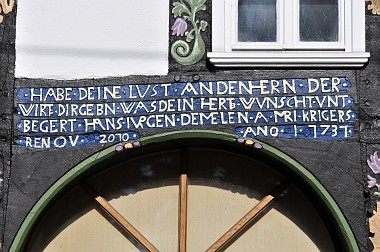 · HABE · DEINE · LUST · AN DEN HERN · DER ·
WIRT · DIR GEBN · WAS DEIN HERT · WUNSCHT · VNT ·
BEGERT · HANS IVRGEN · DEMELEN · A · MRI · KRIGERS
RENOV · 2010 · ANO · 1 · 7 3 7 ·